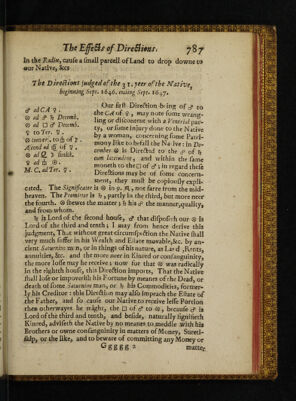 The Effects of Directions. 787
In the Radix, cause a small parcell of Land to drop downe to
our Native, &c.
The Directions judged of the 31. yeer of the Native,
beginning Sept. 1646. ending Sept. 1647.
♂ ad CA ♀.
☉ ad ☍ ♄ Decemb.
☉ ad □ ♂ Decemb.
♀ to Ter. ♀.
☉ ad ♀ simist.
M. C. ad Ter. ♀.
Our first Direction being of ♂ to
the CA of ♀, may note some wrang-
ling or discontent with a Venerial par-
ty, or some injury done to the Native
by a woman, concerning some Patri-
mony like to befall the Native: in De-
cember ☉ is Directed to the ☍ of ♄
cum latitudine, and within the same
month to the □ of ♂; in regard these
Directions may be of some concern-
ment, they must be copiously expli-
cated. The Significator is ☉ in 9. ♏, not farre from the mid-
heaven. The Promittor is ♄, partly in the third, but more neer
the fourth. ☉ shewes the matter; ♄ his ☍ the manner, quality,
and from whom.
♄ is Lord of the second house, ♂ that disposeth our ☉ is
Lord of the third and tenth; I may from hence derive this
judgment, That without great circumspection the Native shall
very much suffer in his Wealth and Estate moveable, &c. by an-
cient Saturnine men, or in things of his nature, as Land, Rents,
annuities, &c. and the more neer in Kinred or consanguinity,
the more losse may he receive; now for that ☉ was radically
in the eighth house, this Direction imports, That the Native
shall lose or impoverish his Fortune by meanes of the Dead, or
death of some Saturnine man, or ♄ his Commodities, former-
ly his Creditor: this Direction may also impeach the Estate of
the Father, and so cause our Native to receive lesse Portion
then otherwayes he might, the □ of ♂ to ☉, because ♂ is
Lord of the third and tenth, and beside, naturally signifieth
Kinred, adviseth the Native by no meanes to meddle with his
Brothers or owne consanguinity in matters of Money, Sureti-
ship, or the like, and to beware of committing any Money or
Ggggg 2 matter